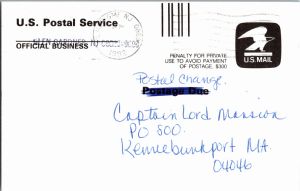 U.S. Postal Service
GLEN GARDNER, NJ
OFFICIAL BUSINESS
PENALTY FOR PRIVATE
USE TO AVOID PAYMENT
OF POSTAGE, $300
U.S. MAIL
Postal Change
Postage Due
Captain Lord Mansion
PO 800.
Kennebunkport MA.
04046